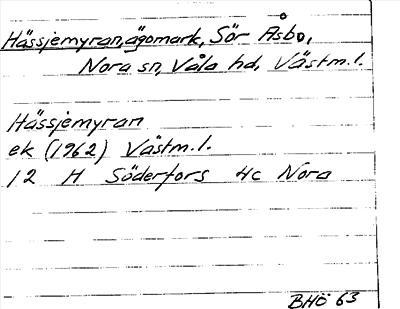 Hässjemyran, ägomark, Sör Åsbo,
Nora sn, Våla hd, Västm.l.
Hässjemyran
ek (1962) Västm.l.
12 H Söderfors 4c Nora
BHÖ 63